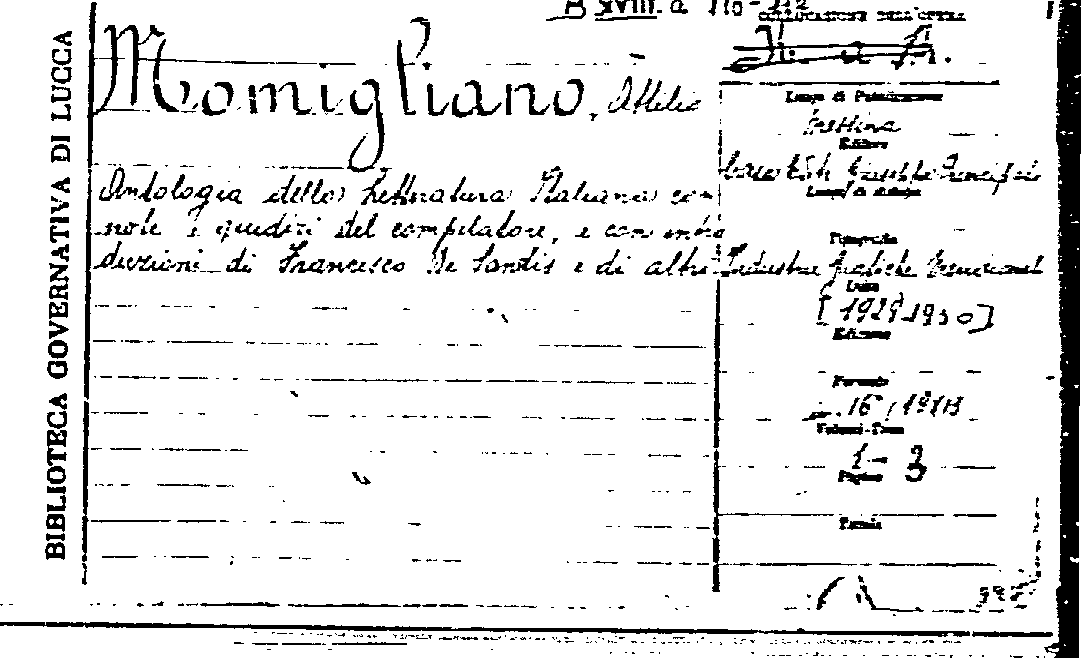 B XVIII. a 110-112
COLLOCAZIONE DELL'OPERA
BIBLIOTECA GOVERNATIVA DI LUCCA
Momigliano, Attilio
Antologia della Letteratura Italiana con
note e giudizi del compilatore, e con intro
duzioni di Francesco De Sanctis e di altri
Luogo di Pubblicazione
Messina
Editore
Giuseppe Principato
Luogo di stampa
Tipografia
Industrie Grafiche
Data
[1929-1930]
Edizione
Formato
16°
Volumi-Tomi
1-3
Pagine
Tavole